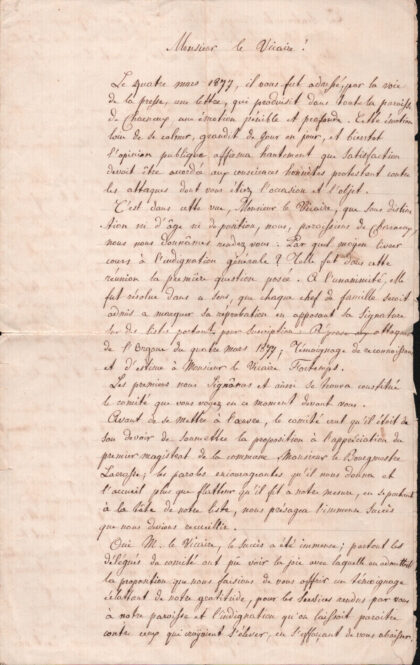 Monsieur le Vicaire !
Le quatre mars 1877, il vous fut adressé, par la voie
de la presse, une lettre, qui produisit dans toute la paroisse
de Charneux une émotion pénible et profonde. Cette émotion
loin de se calmer, grandit de jour en jour, et bientôt
l'opinion publique affirma hautement que satisfaction
devait être accordée aux consciences honnêtes protestant contre
les attaques dont vous étiez l'occasion et l'objet.
C'est dans cette vue, Monsieur le Vicaire, que sans distinc
tion ni d'âge ni de position, nous, paroissiens de Charneux,
nous nous donnâmes rendez-vous. Par quel moyen livrer
cours à l'indignation générale ? Telle fut dans cette
réunion la première question posée. A l'unanimité, elle
fut résolue dans ce sens, que chaque chef de famille serait
admis à marquer sa réprobation en apposant sa signature
sur des listes portant pour suscription : Réponse aux attaques
de l'Organe du quatre mars 1877, Témoignage de reconnaissance
et d'estime à Monsieur le Vicaire
Les premiers nous signâmes et ainsi se trouva constitué
le comité que vous voyez en ce moment devant vous.
Avant de se mettre à l'œuvre, le comité crut qu'il était de
son devoir de soumettre la proposition à l'appréciation du
premier magistrat de la commune Monsieur le Bourgmestre
; les paroles encourageantes qu'il nous donna et
l'accueil plus que flatteur qu'il fit à notre mesure, en se portant
à la tête de notre liste, nous présagea l'immense succès
que nous devions recueillir.
Oui M. le Vicaire, le succès a été immense ; partout les
délégués du comité ont pu voir la joie avec laquelle on admettait
la proposition que nous faisions de vous offrir un témoignage
éclatant de notre gratitude, pour les services rendus par vous
à notre paroisse et l'indignation qu'on laissait paraître
contre ceux qui croyaient s'élever, en s'efforçant de vous abaisser.